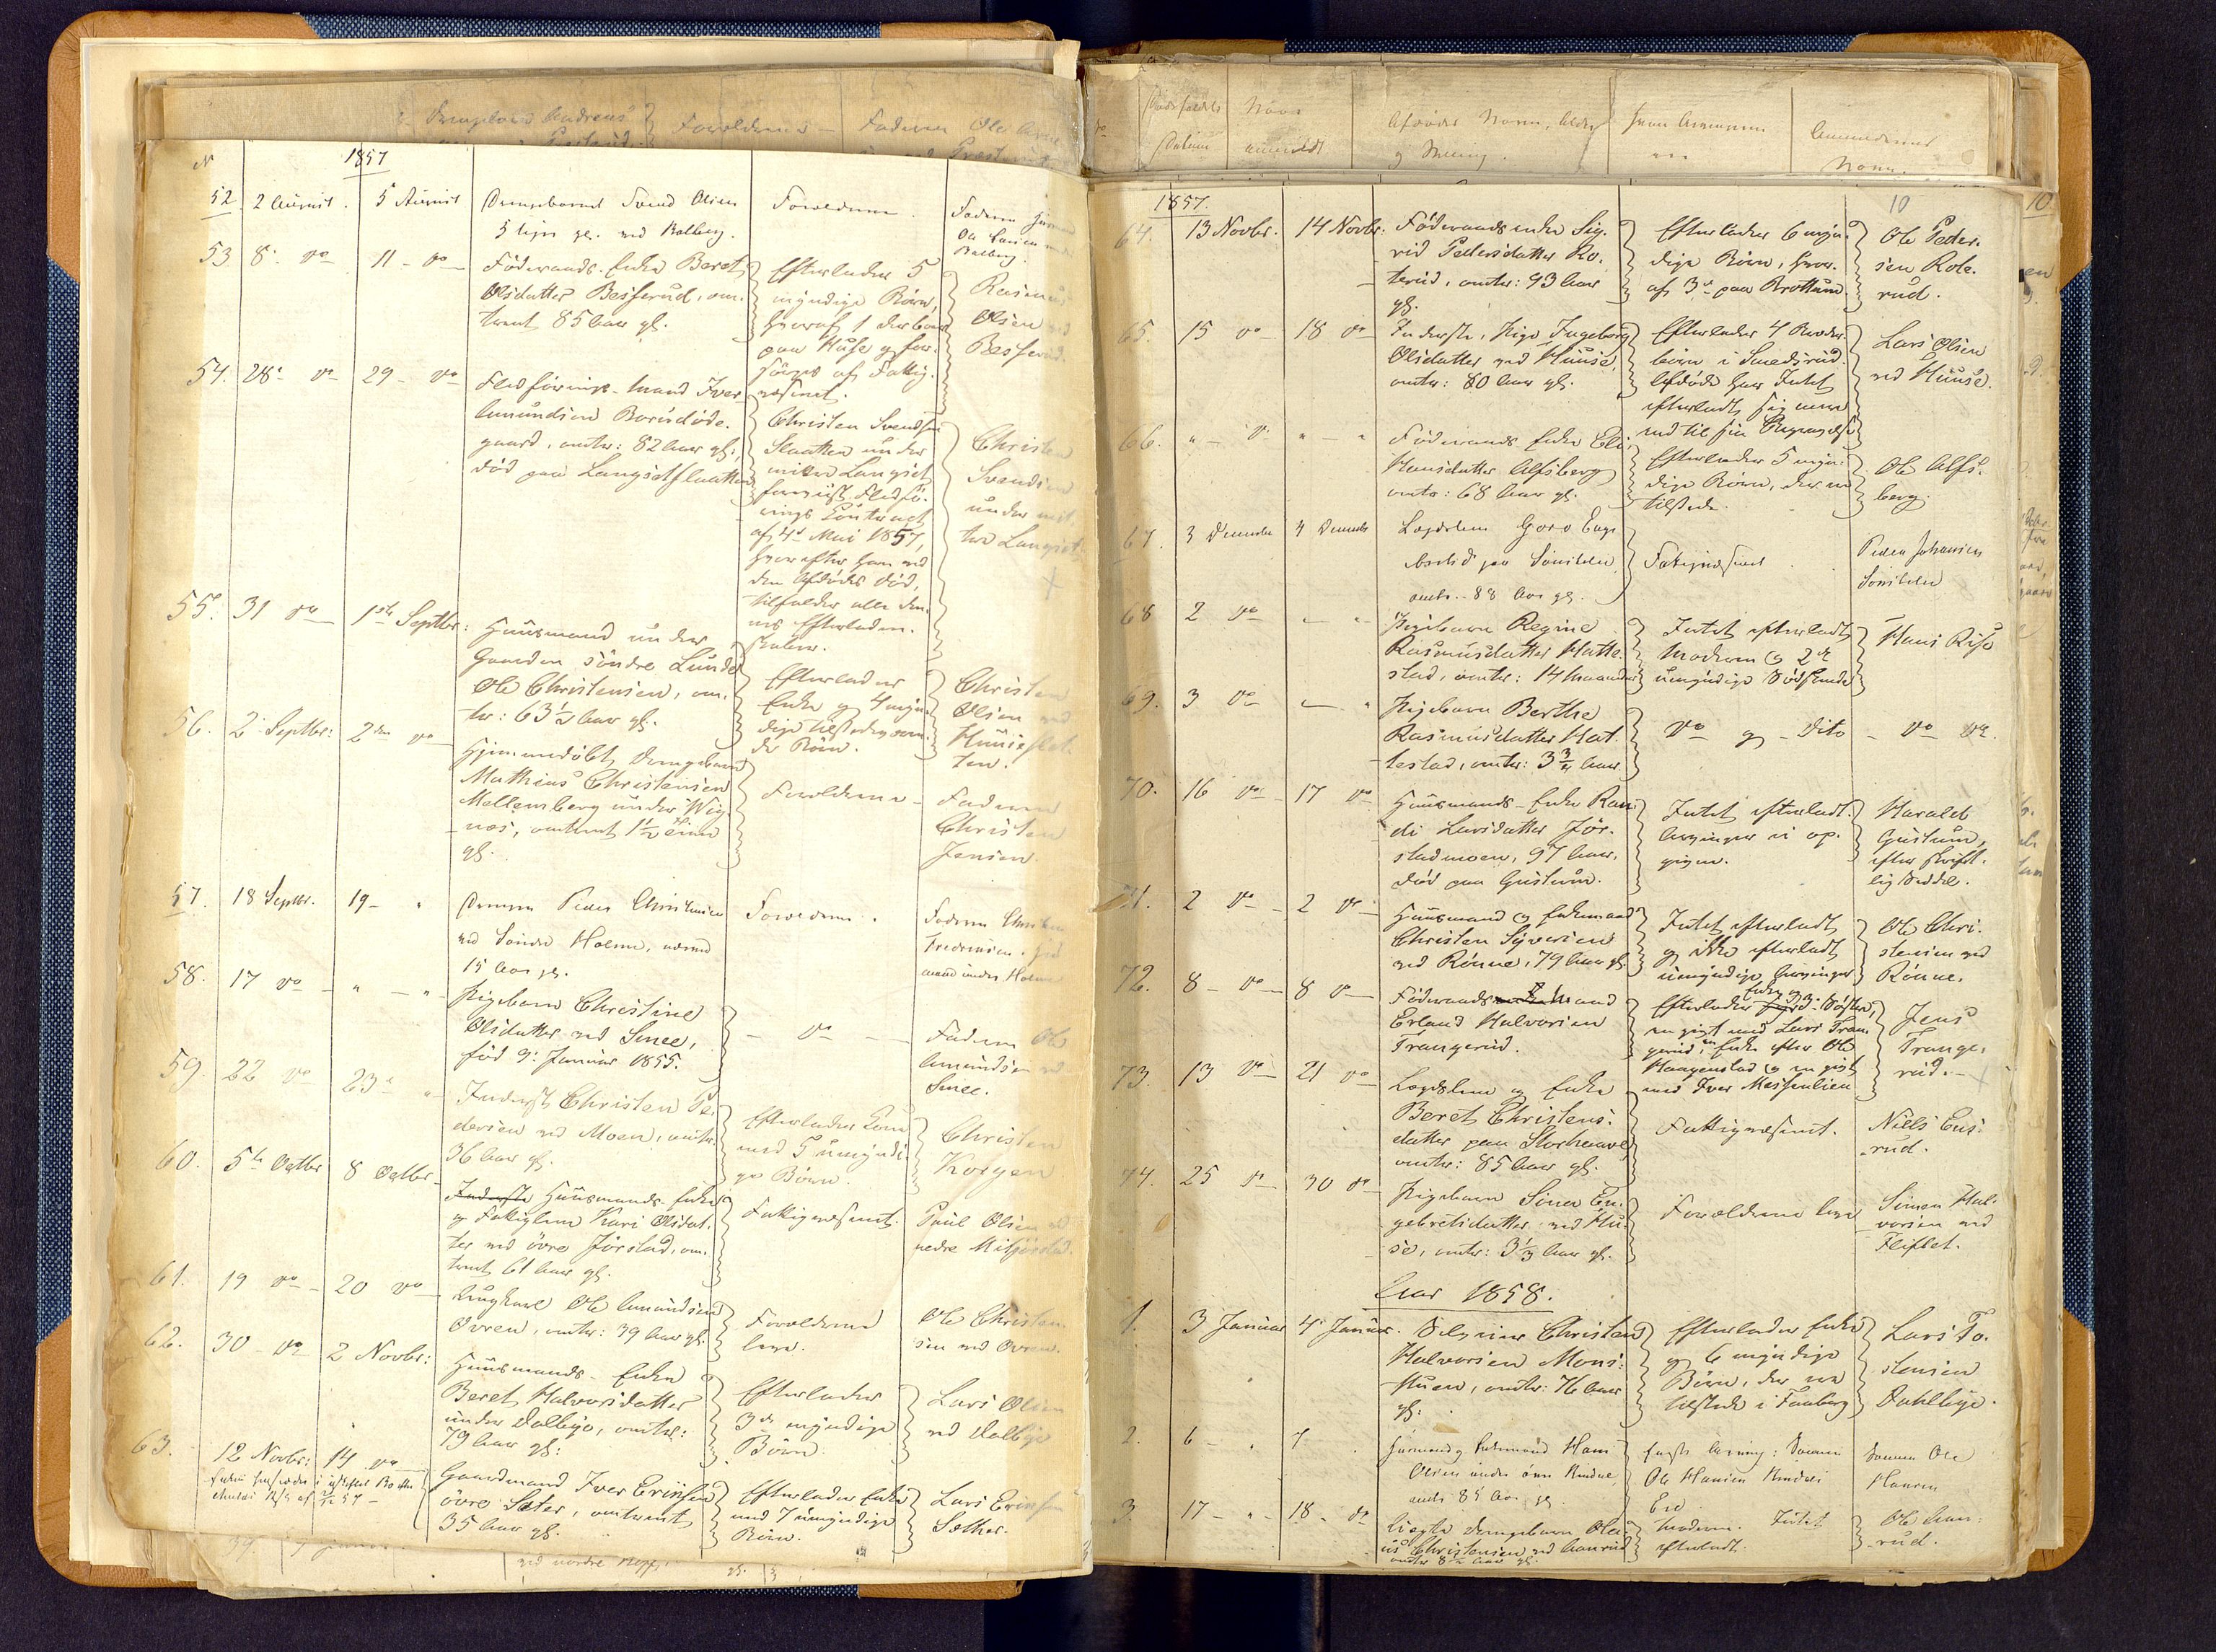 Drengebarn Andreas
Forældrene - Faderen Ole
N 1857
52 2 August. 5 August Drengebarnet Svend Olsen
5 Uger gl. ved Balberg.
Forældrene.
Faderen
Ole Larsen
Balberg.
53 8. do 11 - do Föderaads-Enke Beret
Olsdatter Besserud, om-
trent 85 Aar gl.
Efterlader 5
myndige Börn,
hvoraf 1
paa Huse og for-
sörges af Fattig-
væsenet.
Rasmus
Olsen ved
Besserud.
54. 28. do 29 - do Fledförings-Mand Iver
Amundsen Borudöde-
gaard, omtr: 82 Aar gl:,
död paa Langsetslaatten
Christen Svendsen
Slaatten under
Langset
Fledfö-
rings Contract
af 4de Mai 1857,
hvorefter han ved
den Afdödes Död,
tilfalder alle den-
nes Efterladen-
skaber.
Christen
Svendsen
under mit-
tre Langset.
55. 31 do 1ste Septbr: Huusmand under
Gaarden söndre Lunde
Ole Christensen, om-
tr: 63 1/2 Aar gl:.
Efterlader
Enke og 4 myn-
dige tilstedeværen-
de Börn.
Christen
Olsen ved
Huuseslet-
ten.
56. 2. Septbr: 2den do Hjemmedöbt Drengebarn
Mathias Christensen
Mellemberg under Wig-
næs, omtrent 1 1/2 Time
gl.
Forældrene -
Faderen
Christen
Jensen.
57. 18 Septbr. 19 - " Drengen Peder Christensen
ved Söndre Holme,
15 Aar gl.
Forældrene.
Faderen Christen
Frederiksen.
mand under Holme
58. 17 do - " - " Pigebarn Christine
Olsdatter ved Smee,
föd 9. Januar 1855.
- do -
Faderen Ole
Amundsen
Smee.
59. 22 do 23. " Inderst Christen Pe-
dersen ved Moen, omtr.
36 Aar gl.
Efterlader Kone
med 5 umyndi-
ge Börn.
Christen
Korgen
60. 5te Octbr 8 Octbr. Inderste Huusmands-Enke
og Fattiglem Kari Olsdat-
ter ved övre Jörstad, om-
trent 61 Aar gl.
Fattigvæsenet.
Paul Olsen
nedre Mitjörstad.
61. 19 do - 20 do Ungkarl Ole Amundsen
Ovren, omtr: 39 Aar gl.
Forældrene
leve.
Ole Christen-
sen ved Ovren.
62. 30 - do 2 Novbr: Huusmands-Enke
Beret Halvorsdatter
under Dalbye, omtr:
79 Aar gl:
Efterlader
3de myndige
Börn.
Lars Olsen
ved Dalbye
63. 12 Novbr: 14 do Gaardmand Iver Erinsen
övre Sæter, omtrent
35 Aar gl.
Efterlader Enke
med 7 umyndige
Börn.
Lars Erinsen
Sæther.
39.
ved nordre
Dödsfaldets
Datum
Naar
anmeldt
Afdödes Navn, Alder
og Stilling.
Anmelderens
Navn.
1857. 10
64. 13 Novbr. 14 Novbr: Föderaadsenke Sig-
rid Pedersdatter Ro-
terud, omtr: 93 Aar
gl.
Efterlader 6 myn-
dige Börn, hvor-
af 3de paa Brottum.
Ole Peder-
sen Rote-
rud.
65. 15 do 18 do Inderste, Pige Ingeborg
Olsdatter ved Huuse,
omtr: 80 Aar gl.
Efterlader 4 Broder-
börn i Smedsrud.
Afdöde har Intet
efterladt sig mere
end til sin Begravelse
Lars Olsen
ved Huuse.
66. " - do " - " Föderaads Enke Eli
Hansdatter Alfsberg
omtr: 68 Aar gl.
Efterlader 5 myn-
dige Börn, der ere
tilstede.
Ole Alfs-
berg.
67. 3 December 4 December Lægdslem Goro Enge-
bretsd paa Sönstebye
omtr. 88 Aar gl.
Fattigvæsenet.
Peder Johansen
Sönsteby
68 2 do " " Pigebarn Regine
Rasmusdatter Hatte-
stad, omtr: 14 Maaneder
Intet efterladt
Moderen og 2de
umyndige Södskende
Hans Riise
69. 3 do " Pigebarn Berthe
Rasmusdatter Hat-
testad, omtr: 3 3/4 Aar.
do og - dito - do do.
70. 16 do 17 do Huusmands-Enke Ran-
di Larsdatter Jör-
stadmoen, 97 Aar,
död paa Gustum.
Intet efterladt.
Arvinger ei op-
givne.
Harald
Gustum,
efter skrift-
lig Seddel.
71. 2 do - 2 do - Huusmand og Enkemand
Christen Syversen
ved Rönne, 79 Aar gl.
Intet efterladt
og ikke efterladt
umyndige Arvinger
Ole Chri-
stensen ved
Rönne.
72. 8 - do - 8 do - Föderaadsmand
Erland Halvorsen
Trangerud.
Efterlader Enke og 3 Döttre,
en gift med Lars Tran-
gerud, en Enke efter Ole
Haagenstad og en gift
med Iver Messenlien
Jens
Trange-
rud.
73. 13 do 21 do Lægdslem og Enke
Beret Christens-
datter paa Storhaave
omtr: 85 Aar gl.
Fattigvæsenet.
Niels Ens-
rud.
74. 25 do 30 do Pigebarn Sinea En-
gebretsdatter ved Hu-
se, omtr: 3 1/3 Aar gl.
Forældrene leve
Simen Hal-
vorsen ved
Fliflet.
Aar 1858.
1. 3 Januar 4. Januar. Selveier Christen
Halvorsen Mons-
stuen, omtr: 76 Aar
gl:
Efterlader Enke
og 6 myndige
Börn, der ere
tilstede i Faaberg
Lars To-
stensen
Dahlbye.
2. 6 - " 7 " Huusmand og Enkemand Hans
Olsen under övre Rindal
omtr 85 Aar gl.
Eneste Arving: Sönnen
Ole Hansen Rindals
Eie
Sönnen Ole
Hansen
3. 17 - " - 18 - do Uægte Drengebarn Ole-
us Christensen ved Aanrud
omtr 8 1/2 Aar gl.
Moderen. Intet
efterladt.
Ole Aan-
rud.